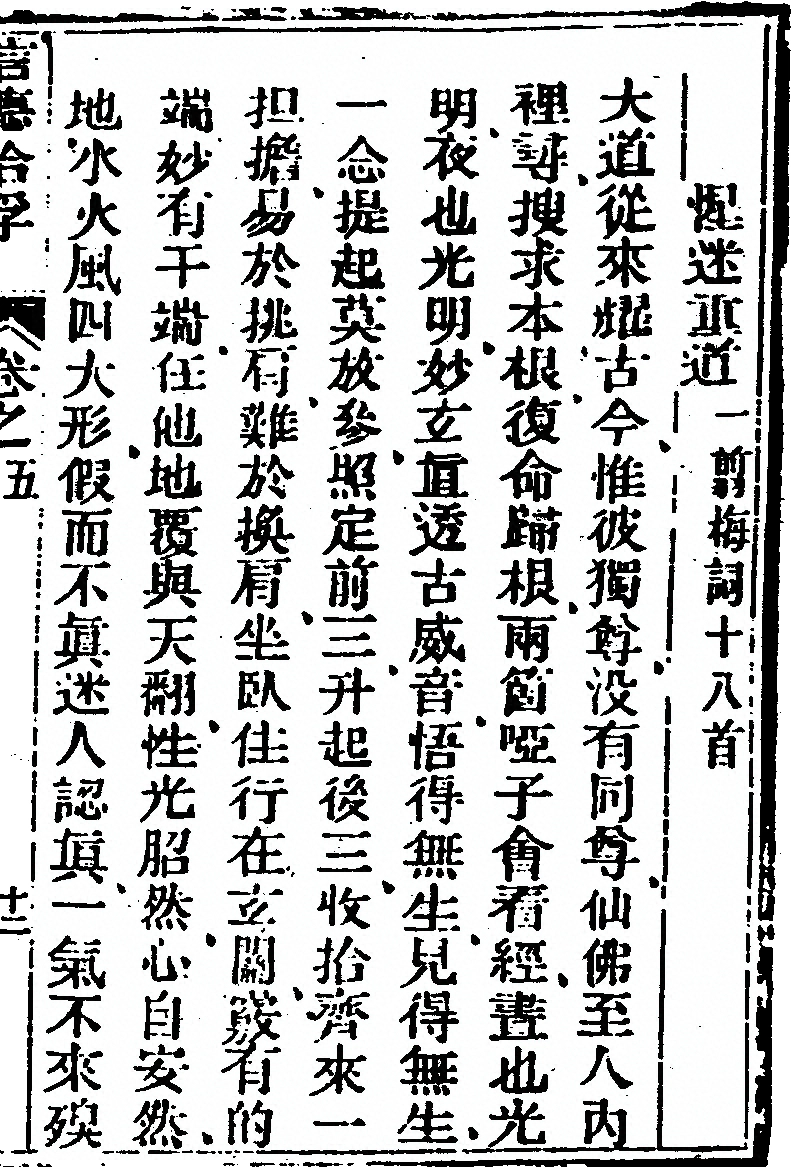 惺迷重道 一剪梅詞十八首
大道從來耀古今惟彼獨尊没有同尊仙佛至人內
裡尋搜求本根復命歸根兩箇啞子會看經晝也光
明夜也光明妙玄直透古威音悟得無生見得無生
一念提起莫放參照定前三升起後三收拾齊來一
担擔易於挑肩難於換肩坐臥住行在玄關竅有的
端妙有千端任他地覆與天翻性光昭然心自安然
地水火風四大形假而不眞迷人認眞一氣不來殞
卷之五
十二